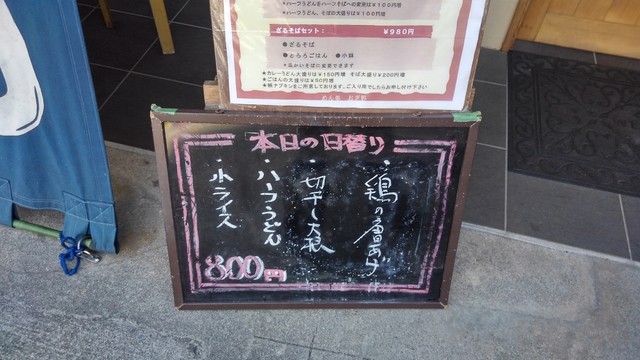 *ハーフうどんをハーフそばへの変更は¥100円増
*ハーフうどん、そばの大盛りは¥100円増
ざるそばセット: ¥980円
●ざるそば
●とろろごはん ●小鉢
*温かいそばに変更できます
★カレーうどん大盛りは¥150円増 そば大盛り¥200円増
★ごはんの大盛りは¥50円増
★紙ナプキンをご用意しております。ご入用でしたらお申し付け下さい
本日の日替り
・鶏の唐揚げ
・切干し大根
・ハーフうどん
・小ライス
800円